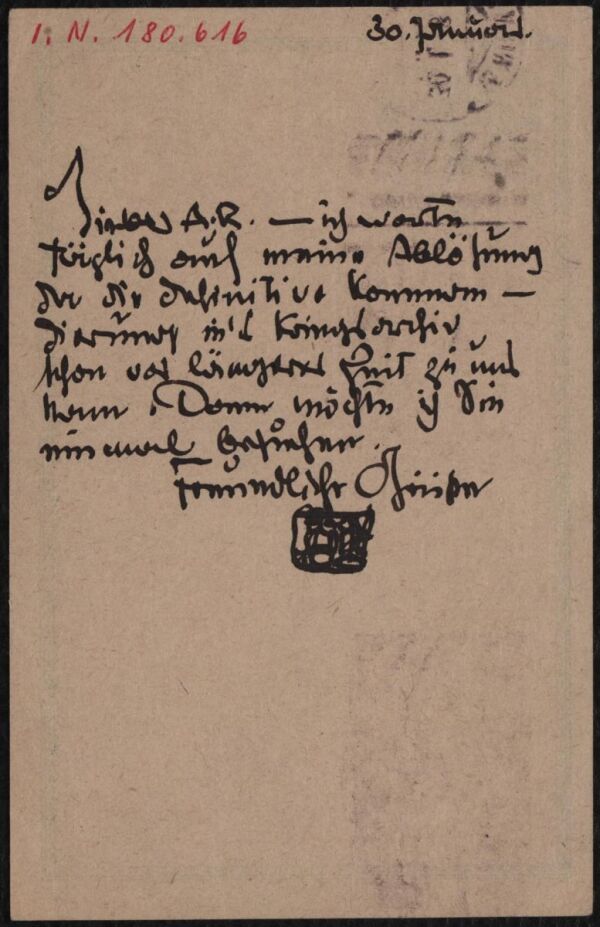 I. N. 180.616
30. Januar.
Lieber A. R. — ich warte
täglich auf meine Ablösung
da die definitive Komman —
dierung in's Kriegsarchiv
schon vor längerer Zeit zu uns
kam. Dann möchte ich Sie
einmal besuchen.
Freundliche Grüße